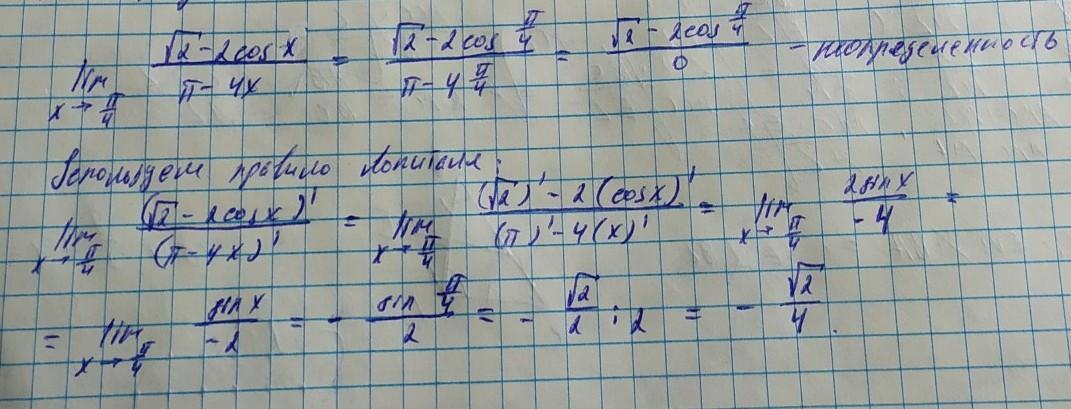 lim x→π/4 (√2 - 2cos x)/(π - 4x) = (√2 - 2cos π/4)/(π - 4 π/4) = (√2 - 2cos π/4)/0 - неопределенность
Используем правило Лопиталя:
lim x→π/4 (√2 - 2cos x)'/(π - 4x)' = lim x→π/4 ((√2)' - 2(cos x)')/((π)' - 4(x)') = lim x→π/4 2sin x/-4 =
= lim x→π/4 sin x/-2 = - sin π/4 /2 = - √2/2 : 2 = - √2/4.